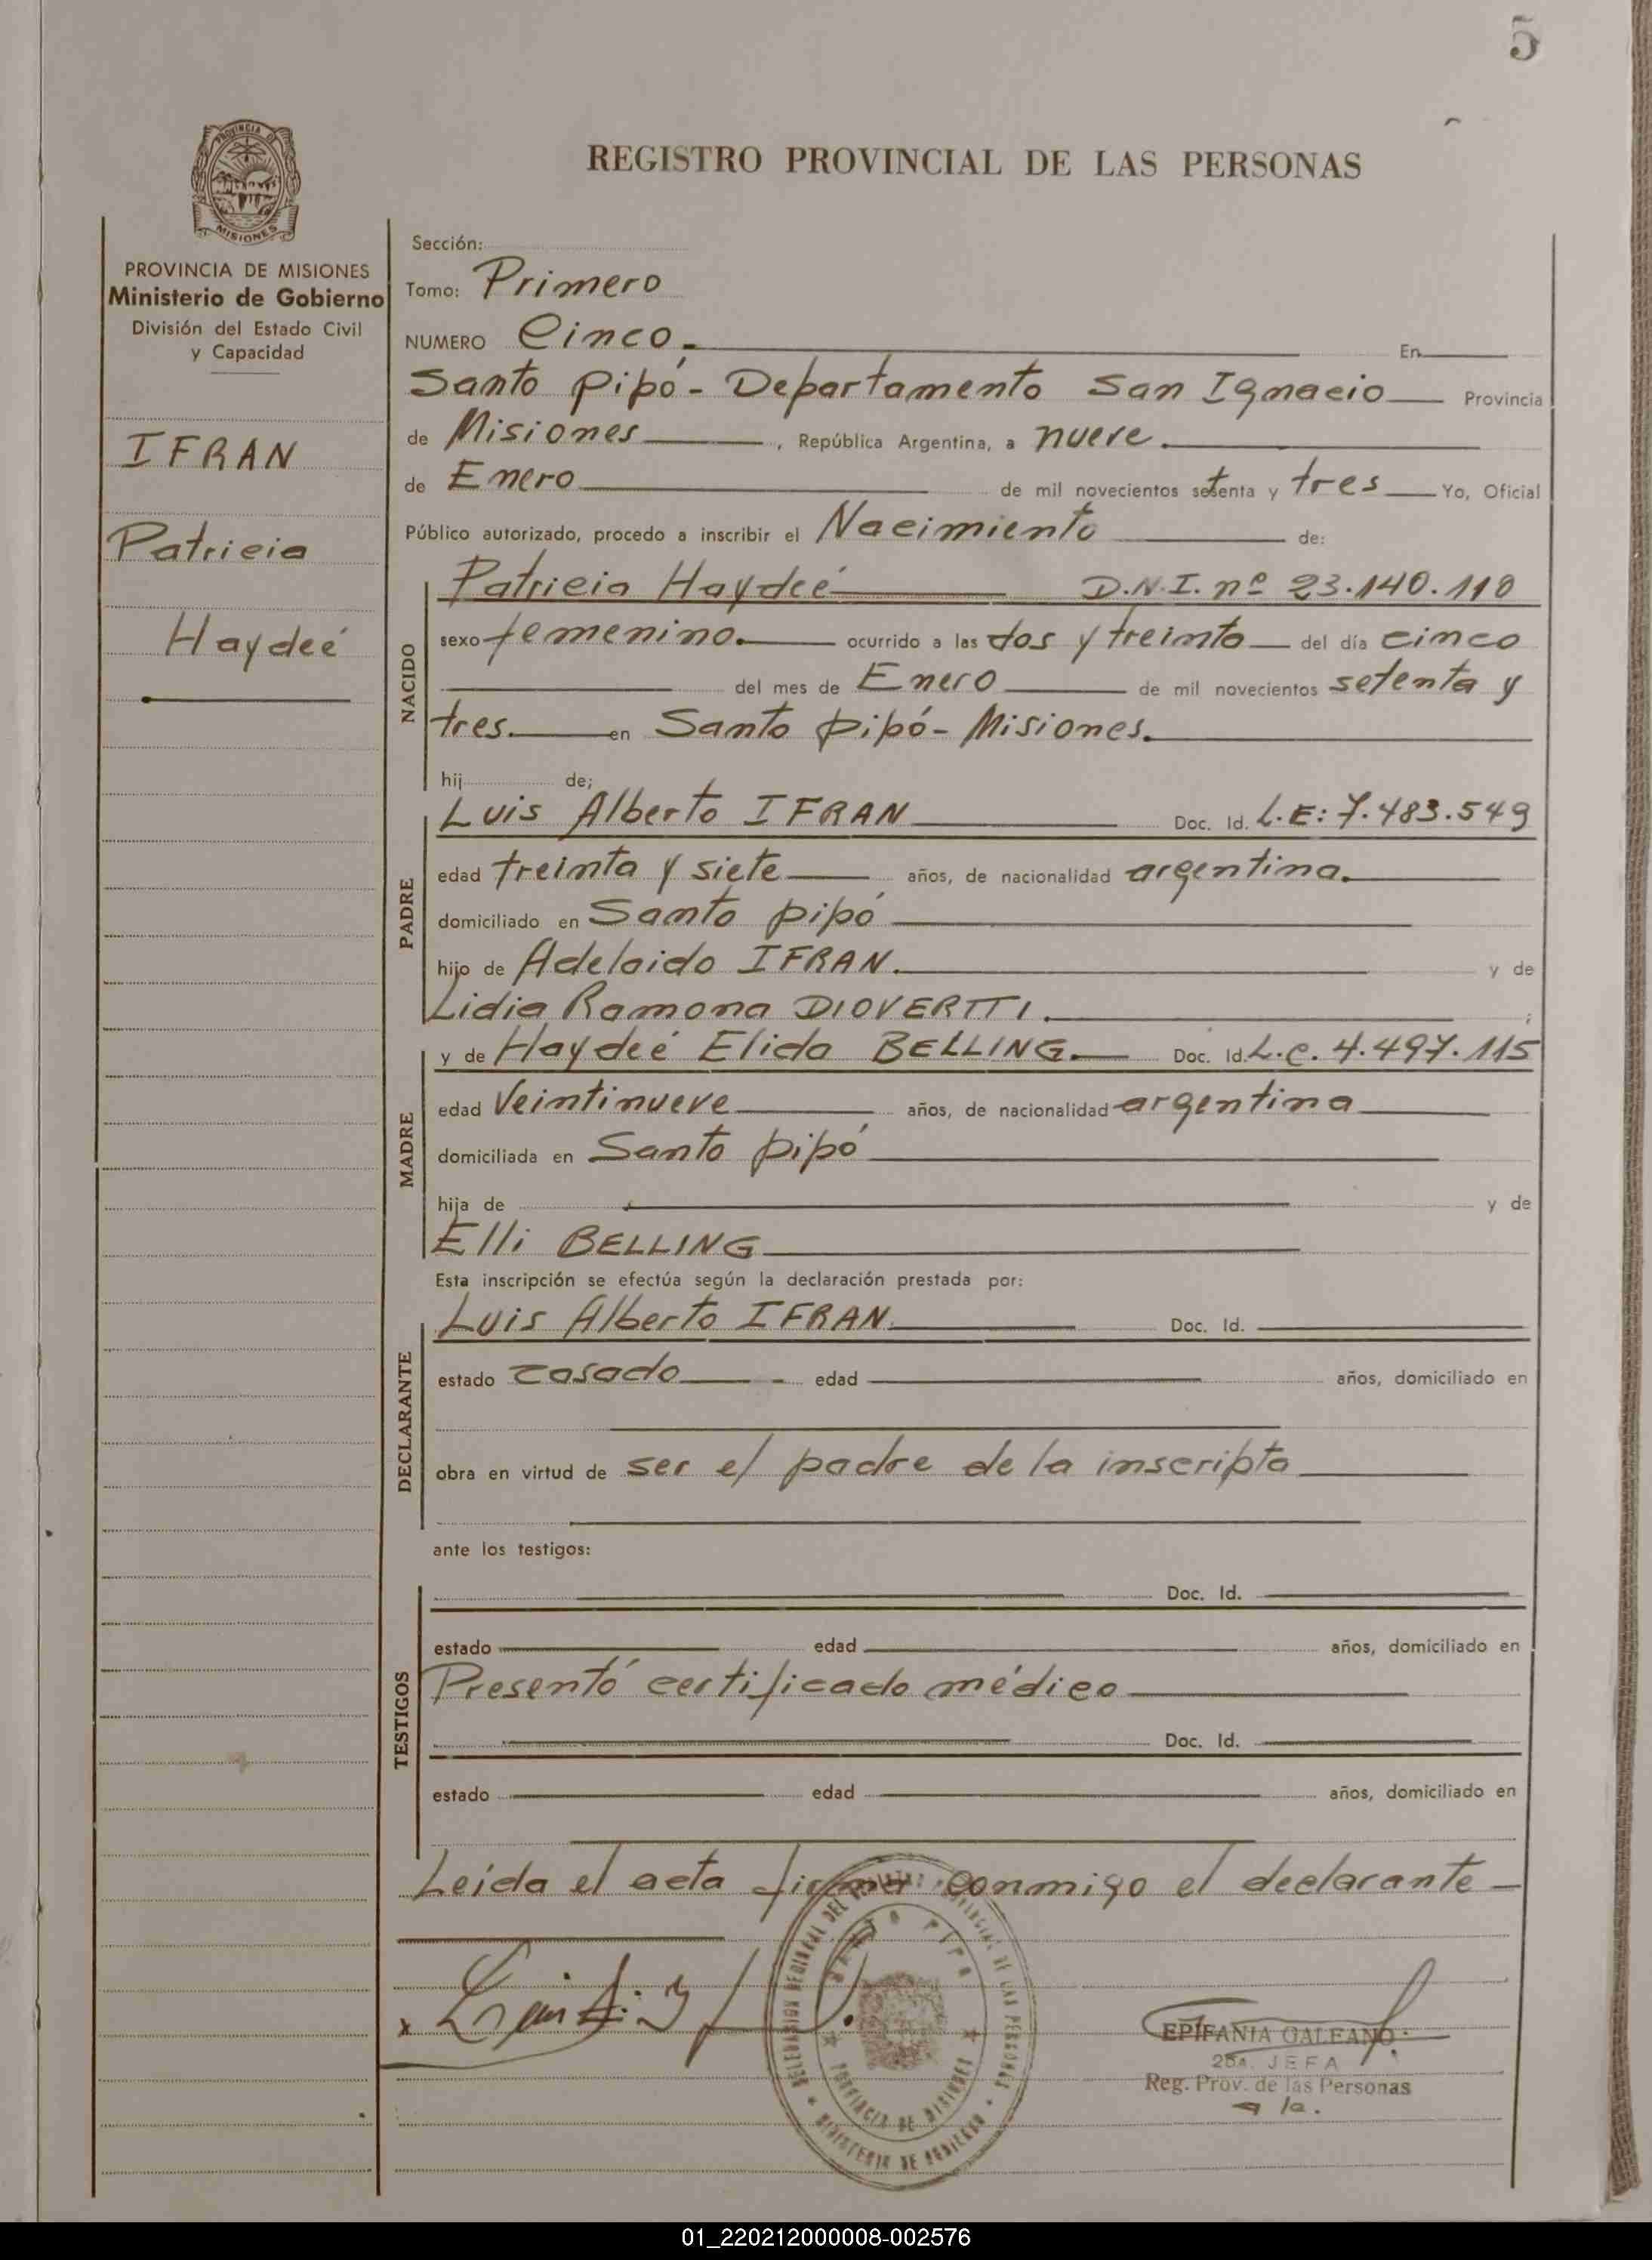 5
REGISTRO PROVINCIAL DE LAS PERSONAS
PROVINCIA DE MISIONES
Ministerio de Gobierno
División del Estado Civil
y Capacidad
IFRAN
Patricia
Haydeé
Sección:
Tomo: Primero
NUMERO Cinco. En
Santo Pipó - Departamento San Ignacio Provincia
de Misiones, República Argentina, a nueve.
de Enero de mil novecientos setenta y tres Yo, Oficial
Público autorizado, procedo a inscribir el Nacimiento de:
NACIDO
Patricia Haydeé D.N.I. nº 23.140.110
sexo femenino. ocurrido a las dos y treinta del día cinco
del mes de Enero de mil novecientos setenta y
tres. en Santo Pipó - Misiones.
hij de;
PADRE
Luis Alberto IFRAN Doc. Id. L.E: 7.483.549
edad treinta y siete años, de nacionalidad argentina.
domiciliado en Santo Pipó
hijo de Adelaido IFRAN. y de
Lidia Ramona DIOVERTTI. ;
MADRE
y de Haydeé Elida BELLING. Doc. Id. L.C. 4.497.115
edad Veintinueve años, de nacionalidad argentina
domiciliada en Santo Pipó
hija de y de
Elli BELLING
Esta inscripción se efectúa según la declaración prestada por:
DECLARANTE
Luis Alberto IFRAN Doc. Id.
estado casado edad años, domiciliado en
obra en virtud de ser el padre de la inscripta
ante los testigos:
TESTIGOS
Doc. Id.
estado edad años, domiciliado en
Presentó certificado médico
Doc. Id.
estado edad años, domiciliado en
Leída el acta firma conmigo el declarante
DELEGACION REGIONAL DEL REGISTRO PROVINCIAL DE LAS PERSONAS
SANTO PIPO
PROVINCIA DE MISIONES
MINISTERIO DE GOBIERNO
EPIFANIA GALEANO
JEFA
Reg. Prov. de las Personas
01_220212000008-002576